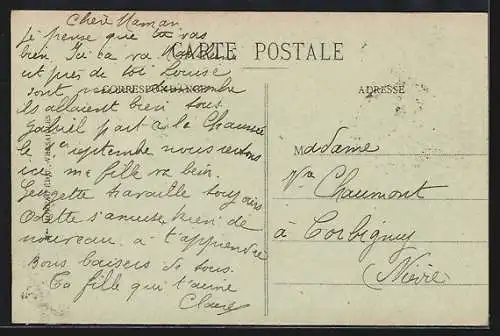 Chère Maman
je pense que tu vas
bien Ici ca va
CARTE POSTALE
est près de toi Louise
CORRESPONDANCE
sont
ils allaient bien tous.
ADRESSE
Gabriel part à la
le septembre nous
ici ma fille va bien.
Georgette travaille toujours
Odette s'amuse rien de
nouveau à t'apprendre
Bons baisers de tous.
Ta fille qui t'aime
Claire
Madame
Vve Chaumont
à Corbigny
Nièvre